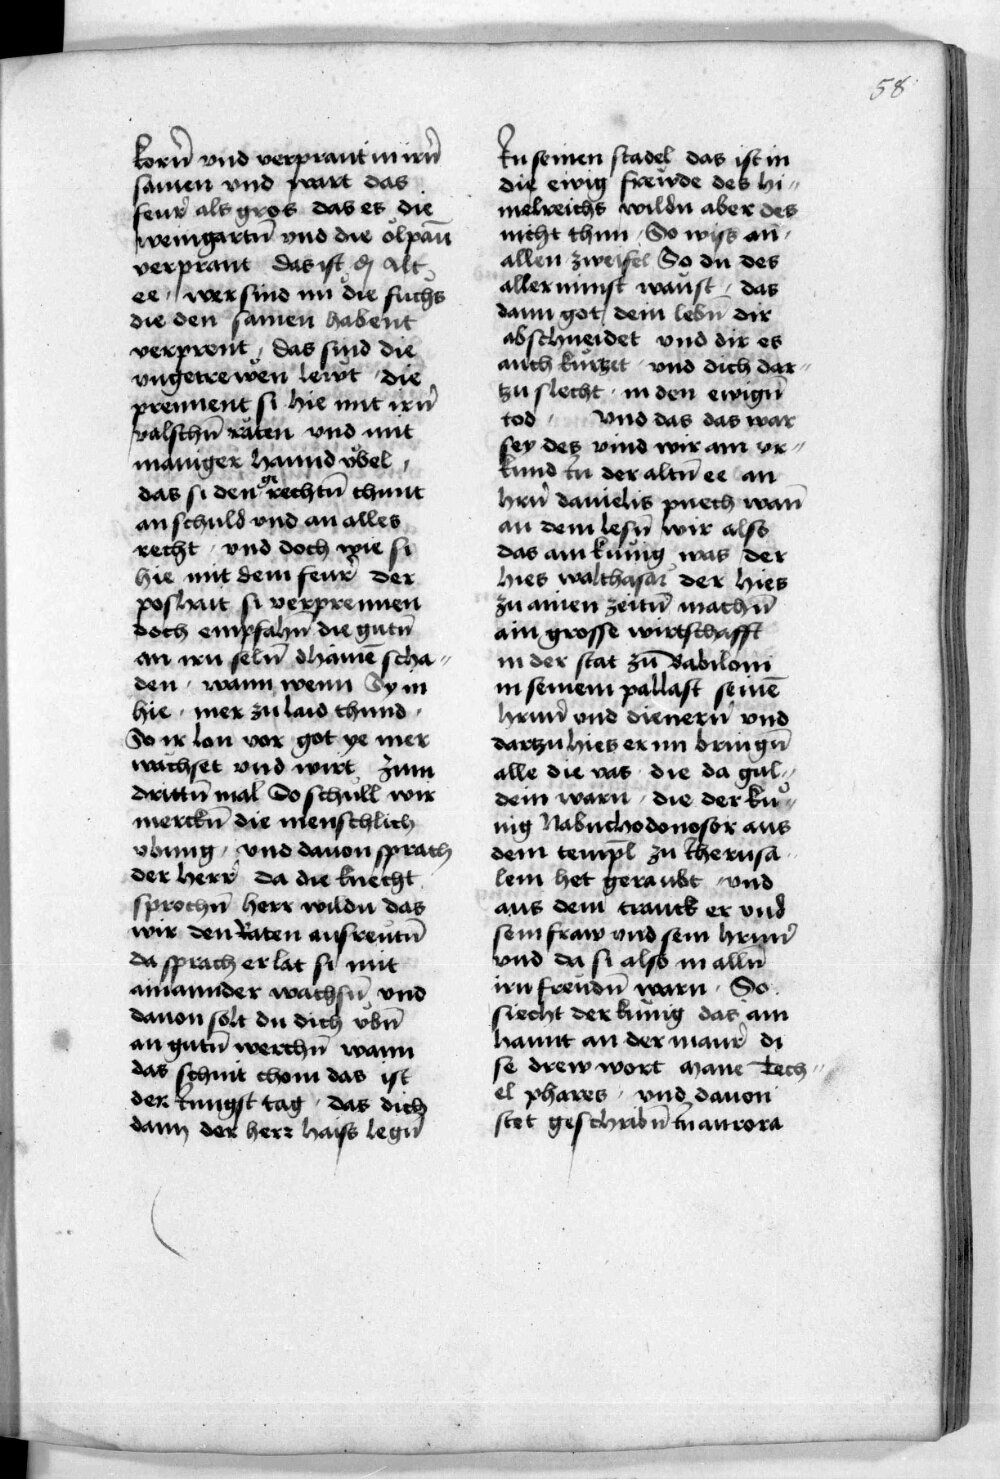 58
korñ vnd verprant in irñ
samen vnd wart das
feur als gros das es die
weingartñ vnd die ölpäu
verprant das ist dj alt
ee · wer sind nu die fuchs
die den samen habent
verprent · das sind die
vngetrewen lewt · die
prennent si hie mit irñ
valschñ räten vnd mit
maniger hannd vbel ·
das si den gerechtñ thunt
an schuld vnd an alles
recht · vnd doch wie si
hie mit dem feur der
poshait si verprennen
doch empfahñ die gutñ
an irn selñ dhainē scha〃
den · wann wenn Sy in
hie · mer zu laid thund ·
So ir lon vor got ye mer
wachset vnd wirt Zum
drittñ mal So schüll wir
merckñ die menschlich
vbung · vnd dauon sprach
der herr da die knecht
sprochñ herr wildu das
wir den Raten ausreutñ
da sprach er lat si mit
ainannder wachsñ vnd
dauon solt du dich vbñ
an gutñ werchñ wann
das schnit chom das ist
der Jungst tag · das dich
dann der herr haiss legñ
In seinen stadel das ist in
die ewig frewde des hi〃
melreichs wildu aber des
nicht thun · So wiss an ·
allen zweifel So du des
aller minst wänst · das
dann got dein lebñ dir
abschneidet vnd dir es
auch kürtzet · vnd dich dar〃
tzu slecht · in den ewigñ
tod · Vnd das das war
sey des vind wir ain vr〃
kund In der altñ ee an
hrñ danielis puech wañ
an dem lesñ wir also
das ain künig was der
hies walthasar der hies
zu ainen zeitñ machñ
ain grosse wirtschafft
in der stat zu Babiloni
in seinem pallast seinē
hrnñ vnd dienerñ vnd
dartzu hies er im bringñ
alle die vas · die da gul〃
dein warn · die der kü〃
nig Nabuchodonosor aus
dem templ zu Jherusa〃
lem het geraubt · vnd
aus dem tranck er vnd
sein fraw vnd sein hrnñ
vnd da si also in allñ
irn freudñ warn · So
siecht der künig das ain
hannt an der maur di
se drew wort Mane Tech〃
el phares · vnd dauon
stet geschribñ In aurora